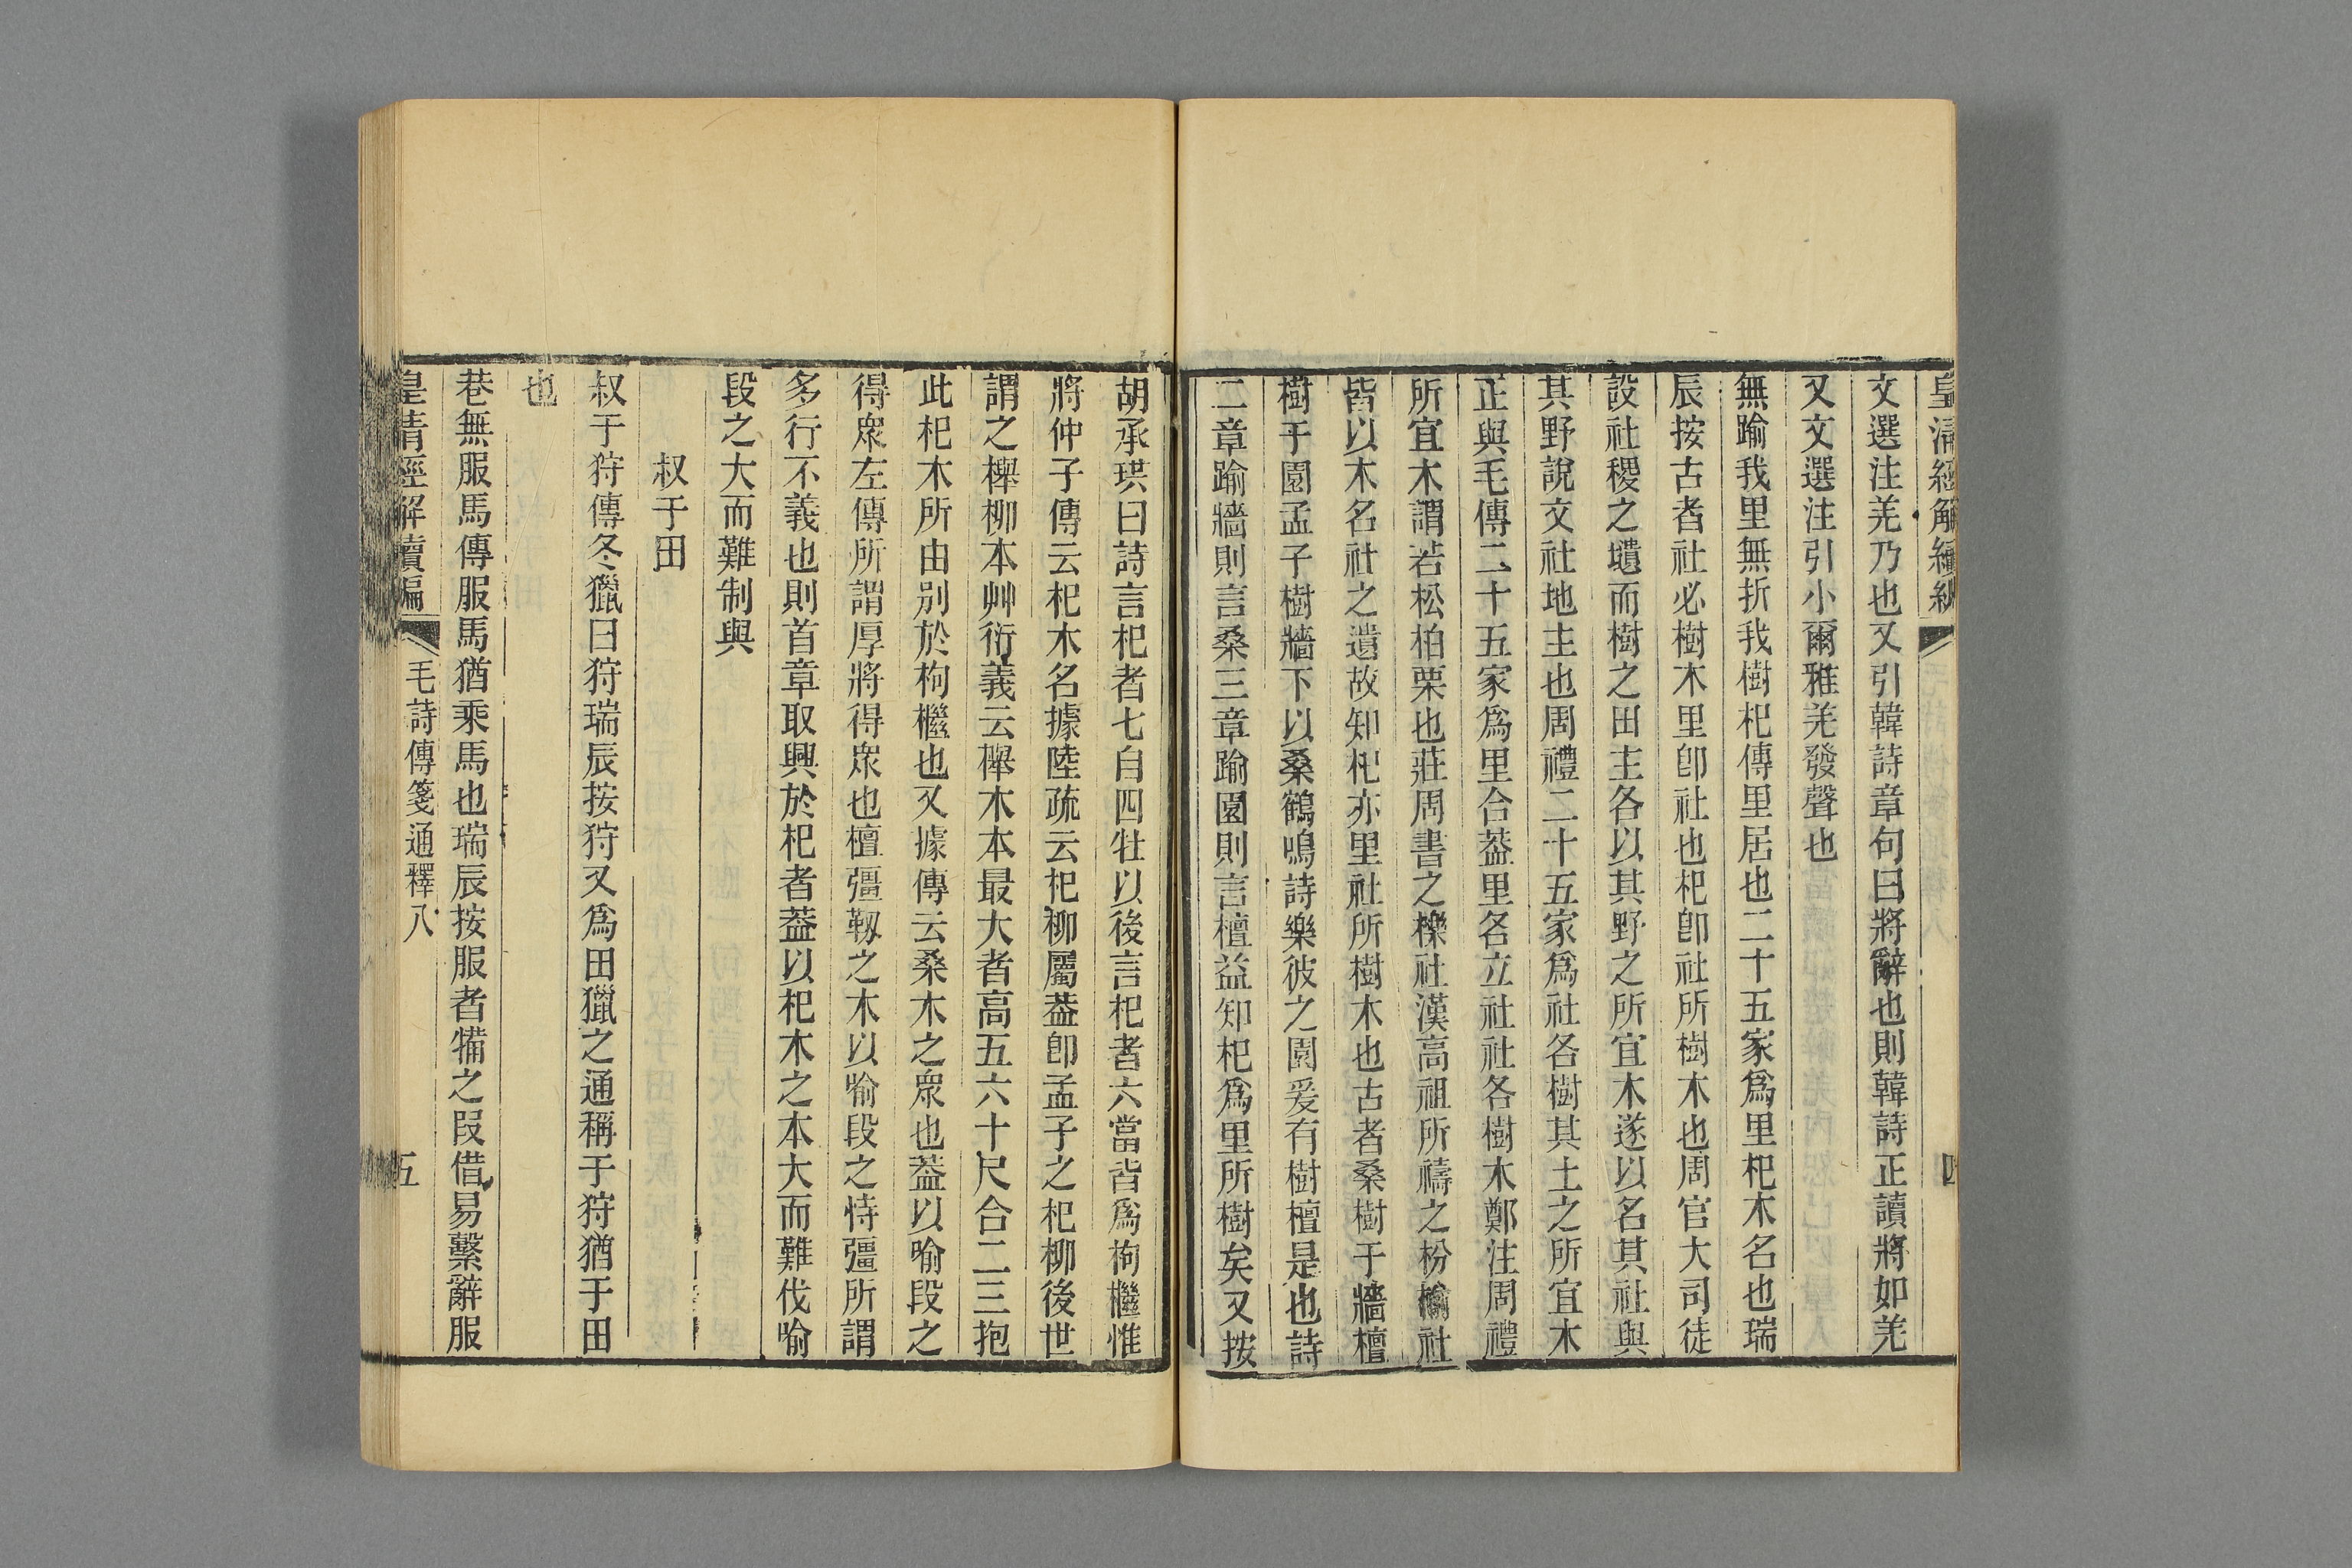 皇清經解續編
四
文選注羌乃也又引韓詩章句曰將辭也則韓詩正讀將如羌
又文選注引小爾雅羌發聲也
無踰我里無折我樹杞傳里居也二十五家爲里杞木名也瑞
辰按古者社必樹木里卽社也杞卽社所樹木也周官大司徒
設社稷之壝而樹之田主各以其野之所宜木遂以名其社與
其野說文社地主也周禮二十五家爲社各樹其土之所宜木
正與毛傳二十五家爲里合葢里各立社社各樹木鄭注周禮
所宜木謂若松柏栗也莊周書之櫟社漢高祖所禱之枌榆社
皆以木名社之遺故知杞亦里社所樹木也古者桑樹于牆檀
樹于園孟子樹牆下以桑鶴鳴詩樂彼之園爰有樹檀是也詩
二章踰牆則言桑三章踰園則言檀益知杞爲里所樹矣又按
胡承珙曰詩言杞者七自四牡以後言杞者六當皆爲枸檵惟
將仲子傳云杞木名據陸疏云杞柳屬葢卽孟子之杞柳後世
謂之櫸柳本艸衍義云櫸木本最大者高五六十尺合二三抱
此杞木所由別於枸檵也又據傳云桑木之眾也葢以喻段之
得眾左傳所謂厚將得眾也檀彊韌之木以喻段之恃彊所謂
多行不義也則首章取興於杞者葢以杞木之本大而難伐喻
段之大而難制與
叔于田
叔于狩傳冬獵曰狩瑞辰按狩又爲田獵之通稱于狩猶于田
也
巷無服馬傳服馬猶乘馬也瑞辰按服者犕之叚借易繫辭服
皇清經解續編
毛詩傳箋通釋八
五